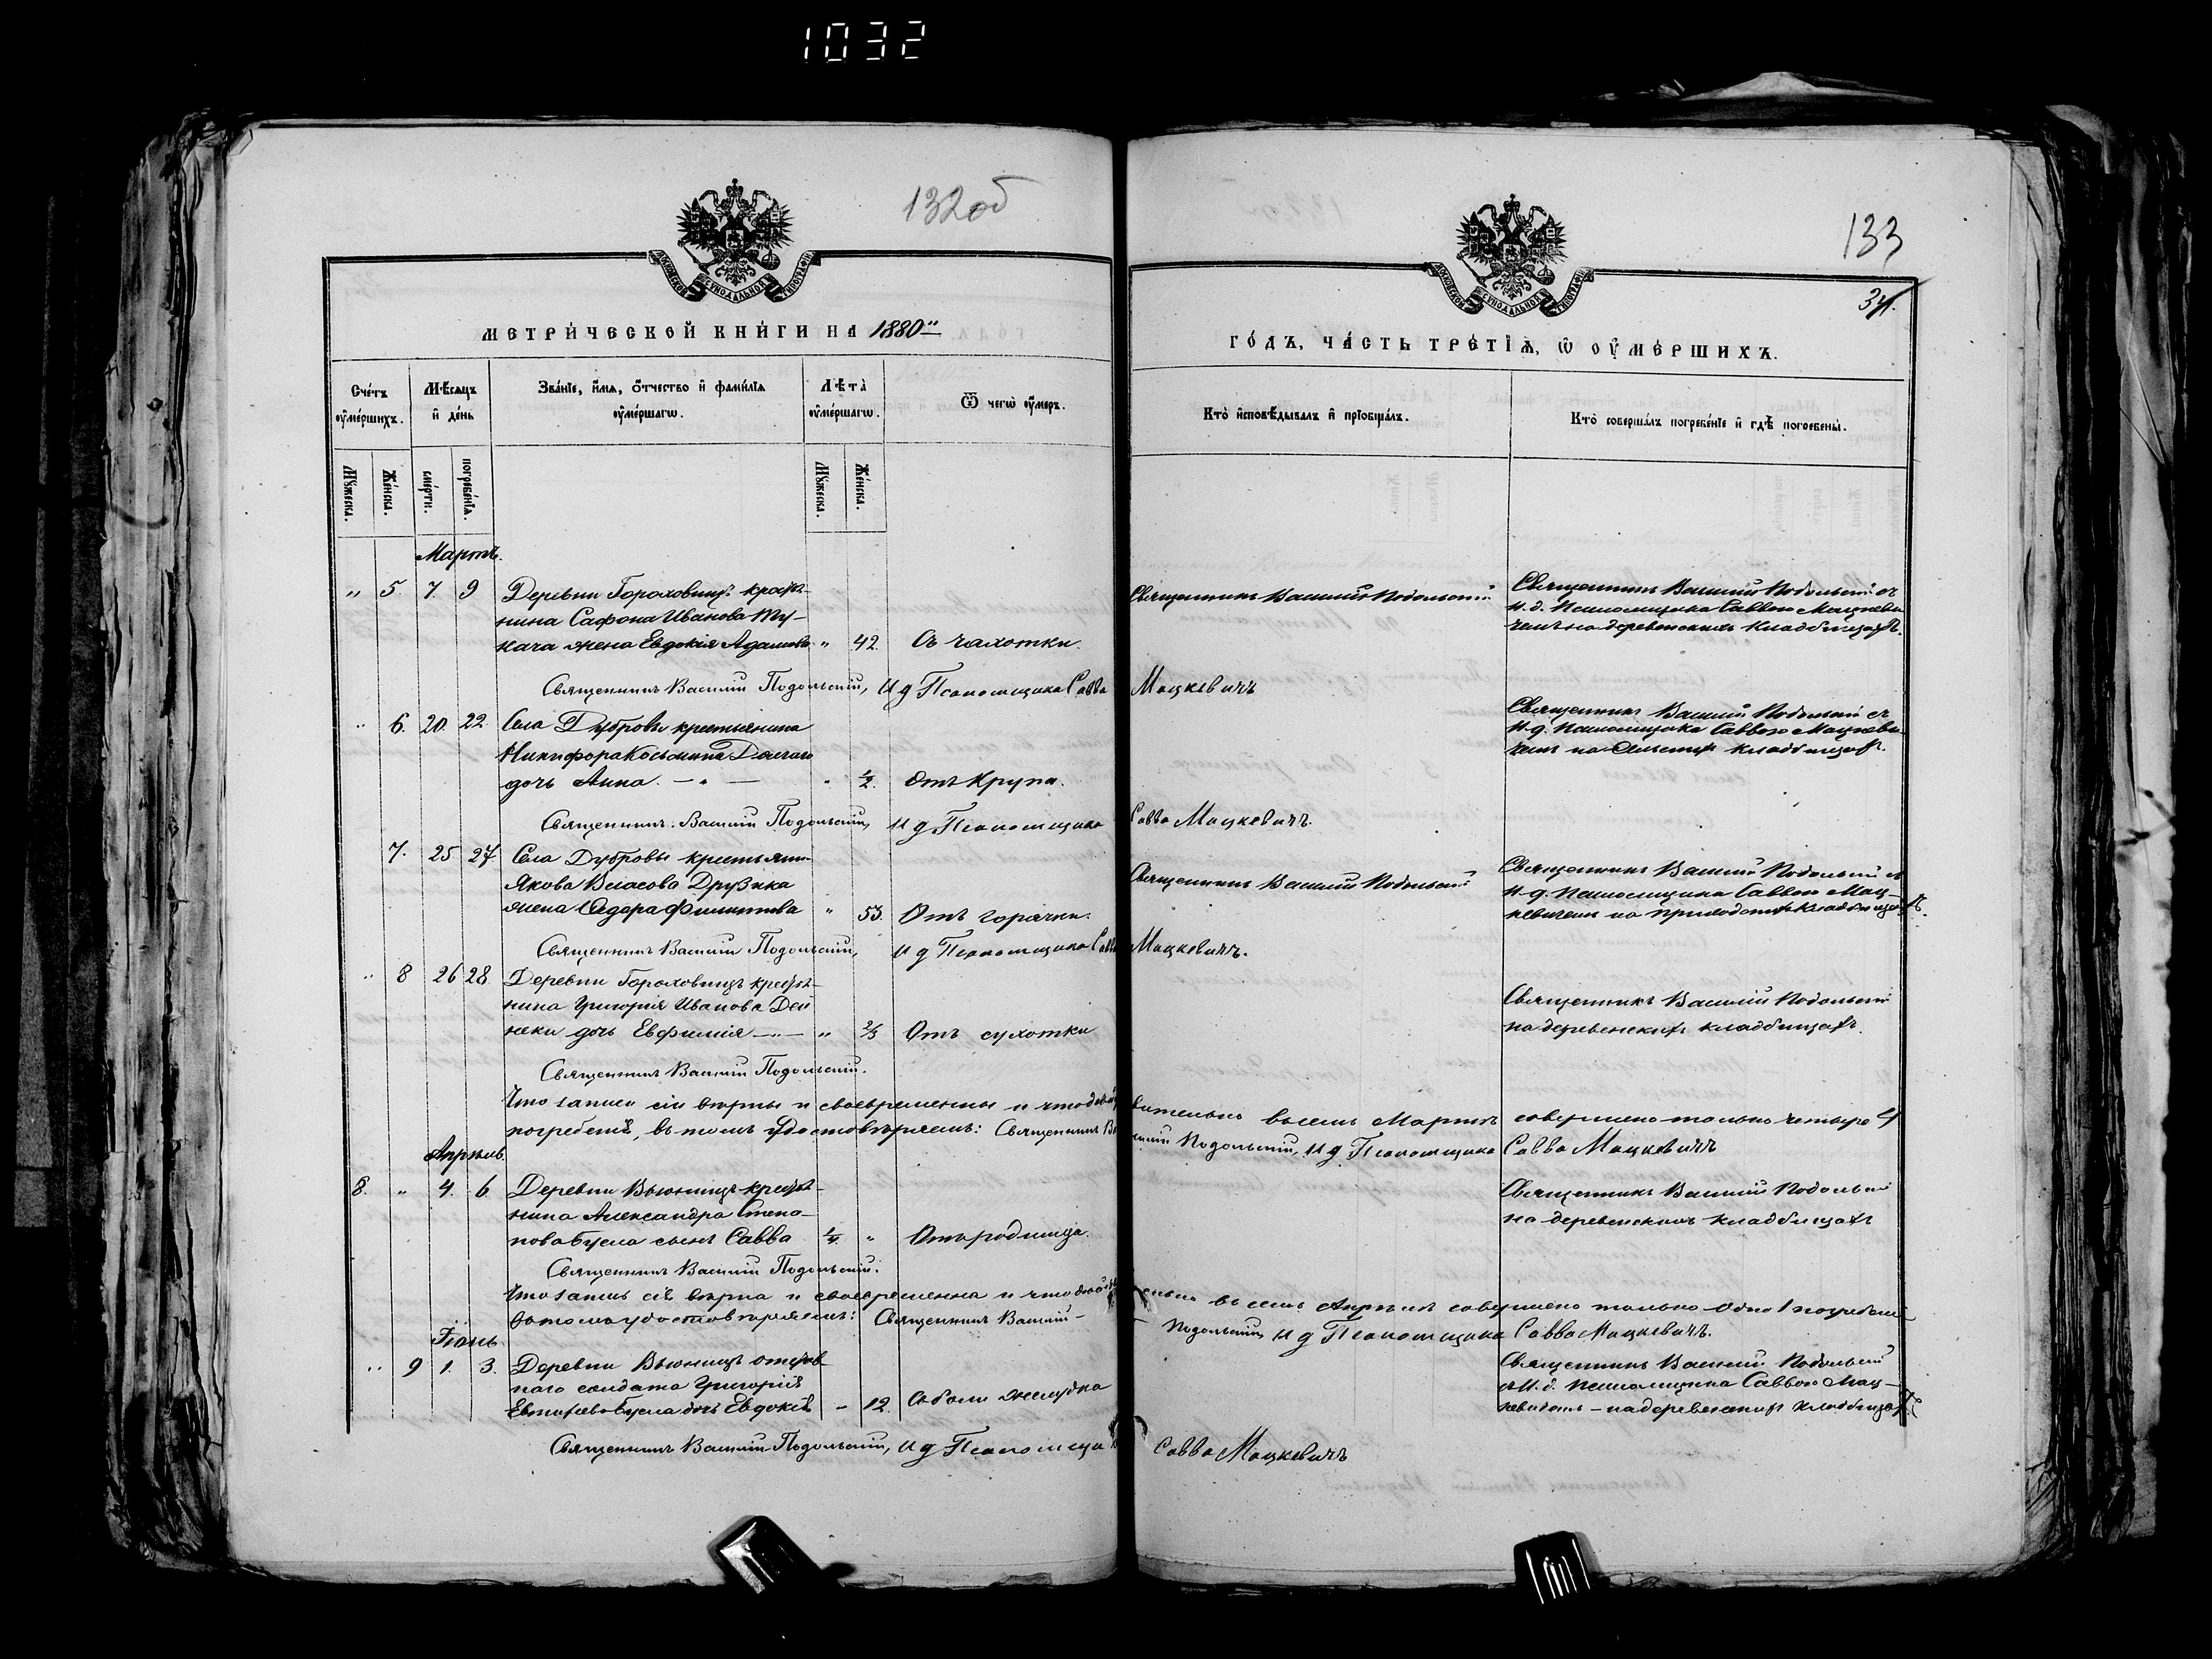 1032
132об
133
34.
МОСКОВСКОЙ СУНОДАЛЬНОЙ ТИПОГРАФІИ
МОСКОВСКОЙ СУНОДАЛЬНОЙ ТИПОГРАФІИ
МЕТРИ́ЧЕСКОЙ КНИ́ГИ НА 1880"
ГО́ДЪ, ЧА́СТЬ ТРЕ́ТІѦ, Ѡ ОУМЕ́РШИХЪ.
Сче́тъ оуме́ршихъ.
Мѣ́сяцъ и де́нь
Зва́нїе, и́мѧ, о́тчество и фами́лїѧ оуме́ршагѡ.
Лѣ́та оуме́ршагѡ.
Ѿ чегѡ̀ оу́меръ.
Кто̀ исповѣ́дывалъ и прїобща́лъ.
Кто̀ соверша́лъ погребе́нїе и гдѣ̀ погребены̀.
Мꙋ́жеска.
Же́нска.
сме́рти.
погребе́нїѧ.
Мꙋ́жеска.
Же́нска.
Мартъ.
" 5 7 9 Деревни Гороховищъ крестья-
нина Сафона Иванова Ту-
кача жена Евдокія Адамова " 42. Съ чахотки.
Священникъ Василій Подольскій
Священникъ Василій Подольскій съ
и.д. Псаломщика Саввою Мацкеви-
чемъ на деревенскихъ кладбищахъ.
Священникъ Василій Подольскій, И д Псаломщика Савва Мацкевичъ
" 6. 20. 22. Села Дубровы крестьянина
Никифора Косьмина Долгаго
дочь Анна. — " — " 1/2. Отъ Крупа.
Священникъ Василій Подольскій съ
и.д. Псаломщика Саввою Мацкеви-
чемъ на сельскихъ кладбищахъ.
Священникъ Василій Подольскій, И д Псаломщика Савва Мацкевичъ.
7. 25 27. Села Дубровы крестьяни-
Якова Власова Друзика
жена Ѳедора Филиппова " 53. Отъ горячки.
Священникъ Василій Подольскій
Священникъ Василій Подольскій съ
и.д. Псаломщика Саввою Мац-
кевичемъ на приходскихъ кладбищахъ.
Священникъ Василій Подольскій, И д Псаломщика Савва Мацкевичъ.
" 8 26 28. Деревни Гороховищъ крестья-
нина Григорія Иванова Дей
неки дочь Евфимія — " — " 2/3 Отъ сухотки
Священникъ Василій Подольскій
на деревенскихъ кладбищахъ.
Священникъ Василій Подольскій.
Что записи сіи вѣрны и своевременны и что действительно въ семъ Мартѣ совершено только четыре 4
погребенія, въ томъ удостовѣряемъ: Священникъ Василій Подольскій, И д Псаломщика Савва Мацкевичъ
Апрѣль
8. " 4. 6. Деревни Вьюнищъ крестья-
нина Александра Степа-
нова Бусла сынъ Савва 1/4. " Отъ родимца.
Священникъ Василій Подольскій
на деревенскихъ кладбищахъ
Священникъ Василій Подольскій.
Что запись сія вѣрна и своевременна и что действительно въ семъ Апрѣлѣ совершено только одно 1 погребеніе
въ томъ удостовѣряемъ: Священникъ Василій Подольскій, И д Псаломщика Савва Мацкевичъ.
Іюнь
" 9 1. 3. Деревни Вьюнищъ отстав-
наго солдата Григорія
Евтихіева Бусла дочь Евдокія — 12. Съ боли желудка
Священникъ Василій Подольскій
съ И.д. Псаломщика Саввою Мац-
кевичемъ – на деревенскихъ кладбищахъ
Священникъ Василій Подольскій, И д Псаломщика Савва Мацкевичъ